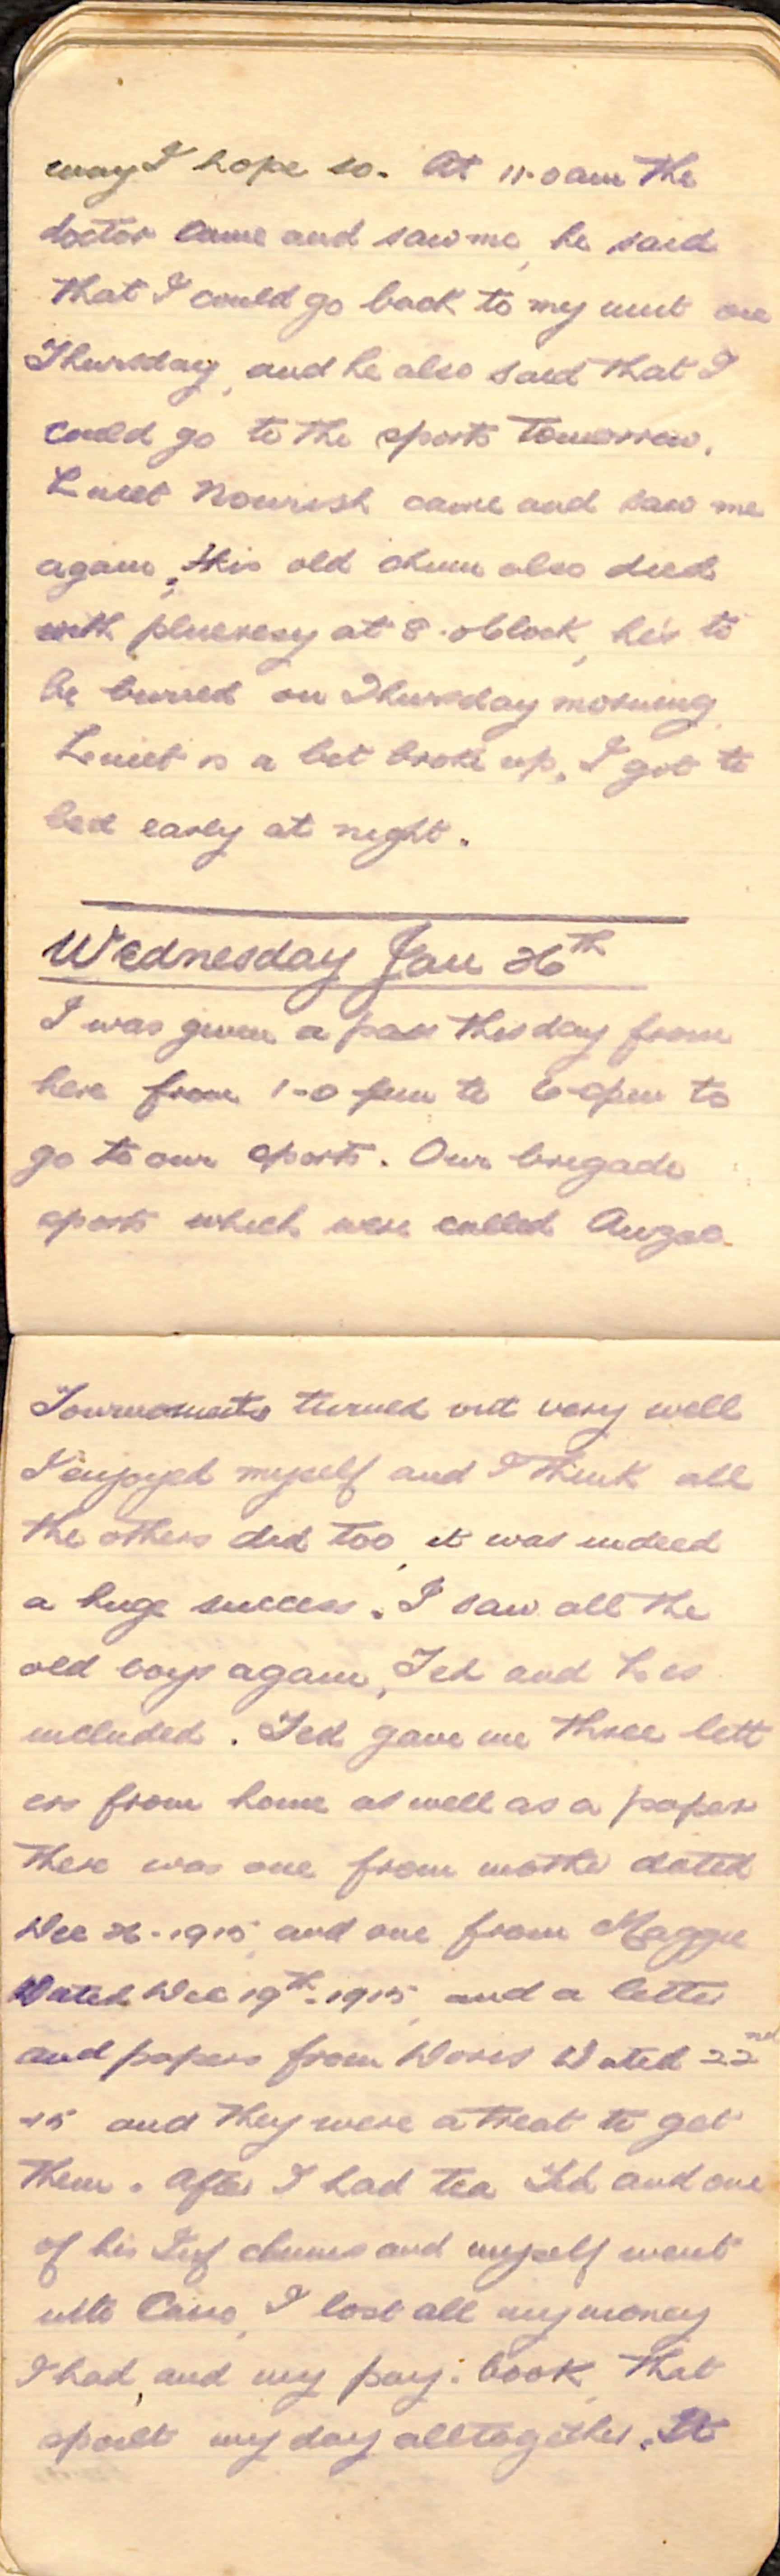 way I hope so. At 11.0am the
doctor came and saw me, he said
that I could go back to my unit on
Thursday, and he also said that I
could go to the sports tomorrow.
Lieut Nourish came and saw me
again, this old chum also died
with plueresy at 8.oclock, he's to
be burred on Thursday morning,
Lieut is a bit broke up, I got to
bed early at night.
Wednesday Jan 26th
I was given a pass this day from
here from 1-0 pm to 6-0pm to
go to our sports. Our brigade
sports which were called Anzac
Tournoments turned out very well
I enjoyed myself and I think all
the others did too, it was indeed
a huge success. I saw all the
old boys again, Ted and Les
included. Ted gave me three lett
ers from home as well as a paper
there was one from mother dated
Dec 26-1915, and one from Maggie
Dated Dec 19th-1915, and a letter
and papers from Doris Dated 22nd
-15 and they were a treat to get
them. After I had tea Ted and one
of his Inf chums and myself went
into Cairo, I lost all my money
I had, and my pay.book, that
spoilt my day alltogether. It